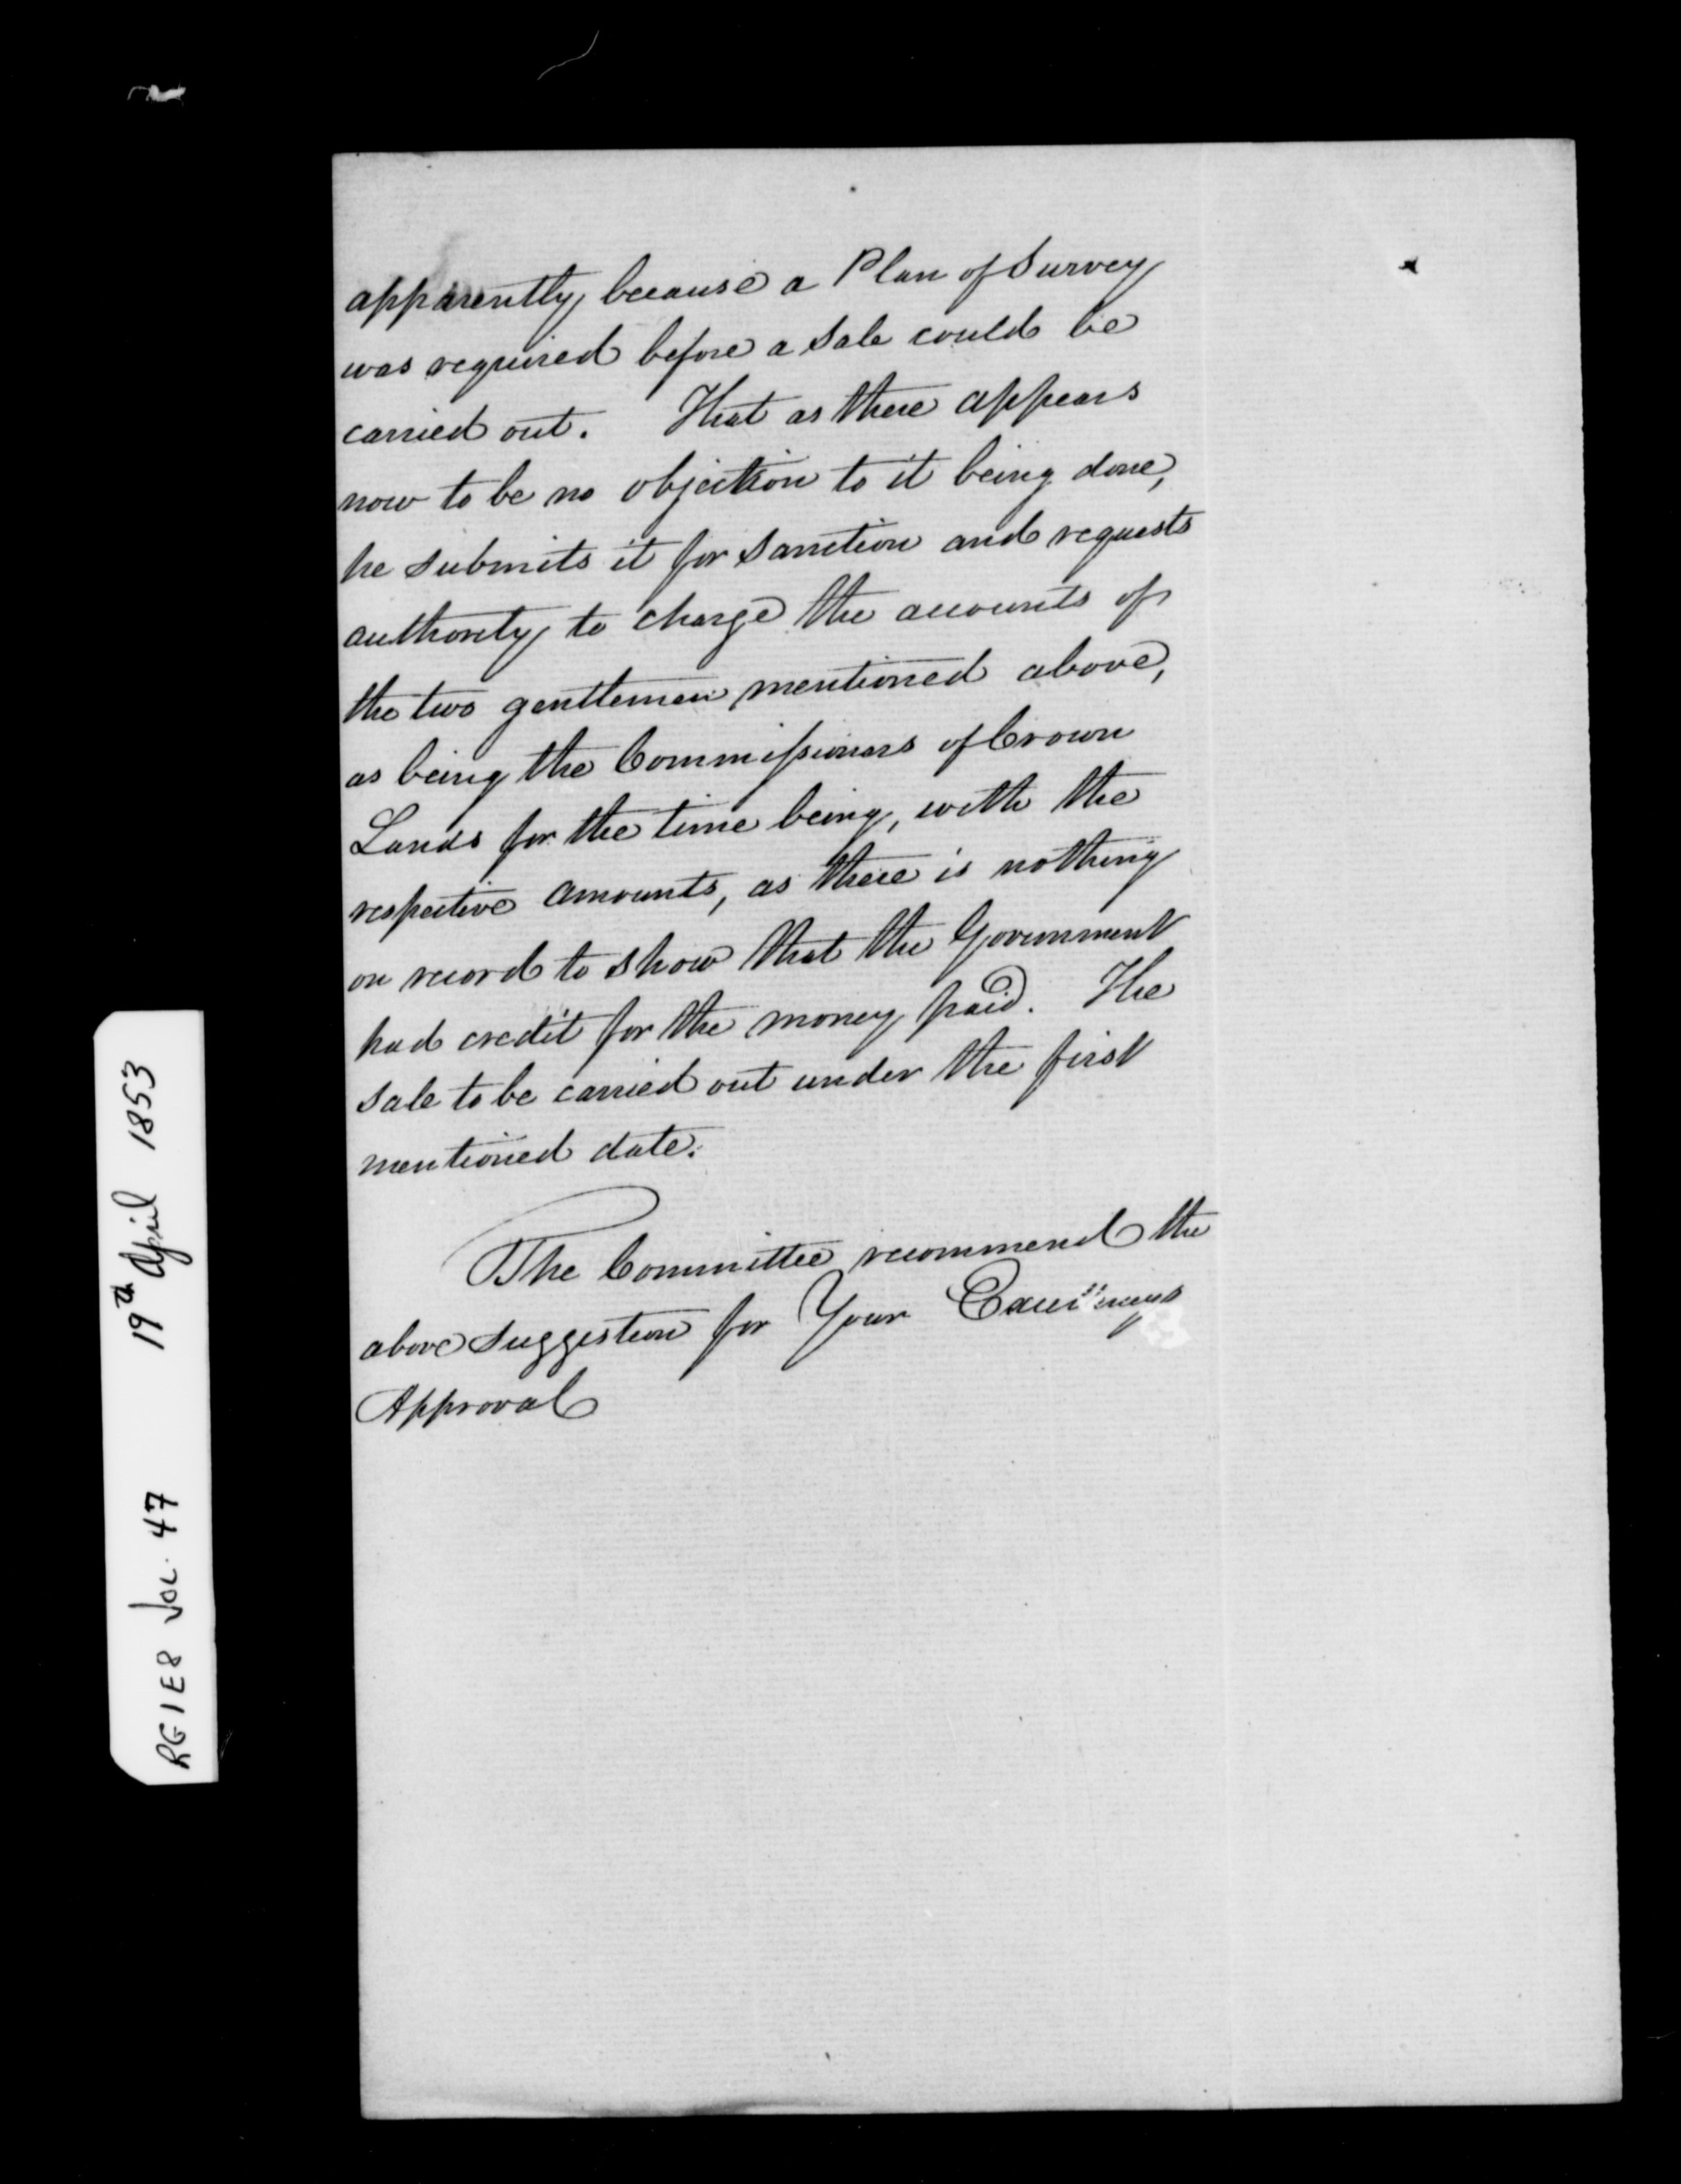 apparently because a Plan of Survey
was required before a Sale could be
carried out. That as there appears
now to be no objection to it being done,
he submits it for Sanction and requests
authority to charge the accounts of
the two gentlemen mentioned above,
as being the Commissioners of Crown
Lands for the time being, with the
respective amounts, as there is nothing
on record to show that the Government
had credit for the money paid. The
Sale to be carried out under the first
mentioned date.
The Committee recommend the
above suggestion for Your Excellency's
Approval
RG1E8 Vol. 47 19th April 1853